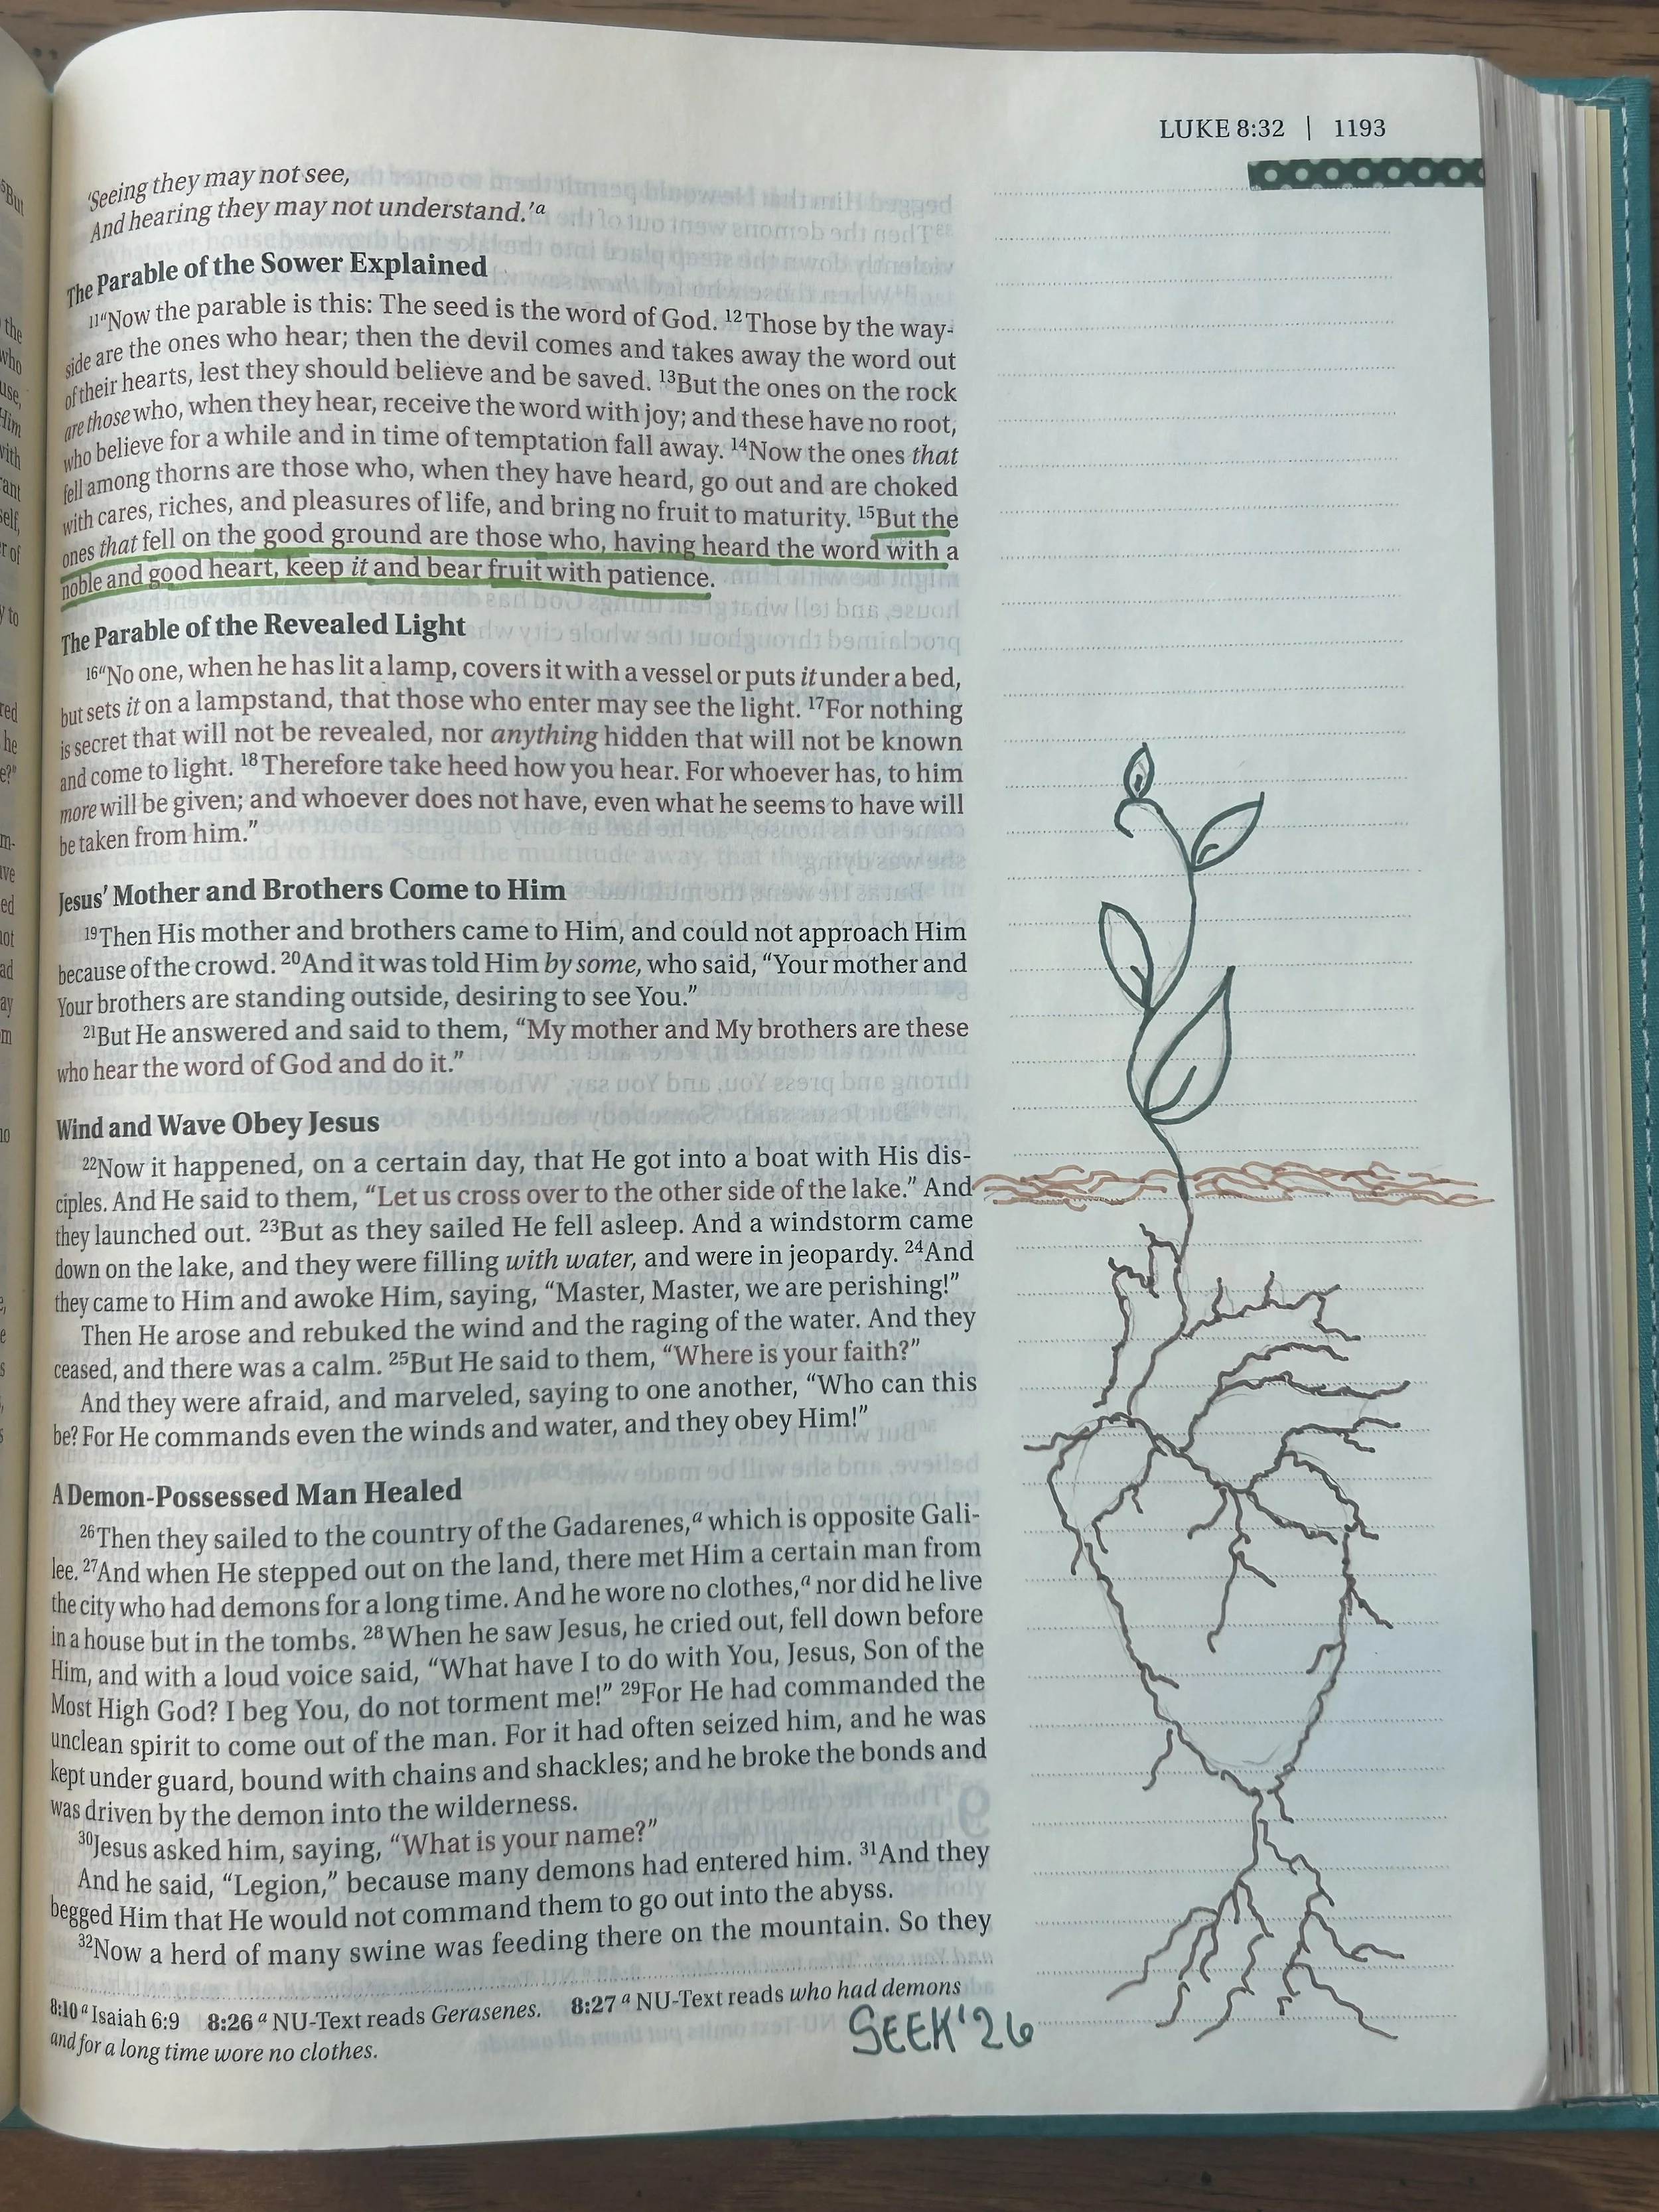 LUKE 8:32 | 1193
‘Seeing they may not see,
And hearing they may not understand.’a
The Parable of the Sower Explained
11“Now the parable is this: The seed is the word of God. 12Those by the way-
side are the ones who hear; then the devil comes and takes away the word out
of their hearts, lest they should believe and be saved. 13But the ones on the rock
are those who, when they hear, receive the word with joy; and these have no root,
who believe for a while and in time of temptation fall away. 14Now the ones that
fell among thorns are those who, when they have heard, go out and are choked
with cares, riches, and pleasures of life, and bring no fruit to maturity. 15But the
ones that fell on the good ground are those who, having heard the word with a
noble and good heart, keep it and bear fruit with patience.
The Parable of the Revealed Light
16“No one, when he has lit a lamp, covers it with a vessel or puts it under a bed,
but sets it on a lampstand, that those who enter may see the light. 17For nothing
is secret that will not be revealed, nor anything hidden that will not be known
and come to light. 18Therefore take heed how you hear. For whoever has, to him
more will be given; and whoever does not have, even what he seems to have will
be taken from him.”
Jesus’ Mother and Brothers Come to Him
19Then His mother and brothers came to Him, and could not approach Him
because of the crowd. 20And it was told Him by some, who said, “Your mother and
Your brothers are standing outside, desiring to see You.”
21But He answered and said to them, “My mother and My brothers are these
who hear the word of God and do it.”
Wind and Wave Obey Jesus
22Now it happened, on a certain day, that He got into a boat with His dis-
ciples. And He said to them, “Let us cross over to the other side of the lake.” And
they launched out. 23But as they sailed He fell asleep. And a windstorm came
down on the lake, and they were filling with water, and were in jeopardy. 24And
they came to Him and awoke Him, saying, “Master, Master, we are perishing!”
Then He arose and rebuked the wind and the raging of the water. And they
ceased, and there was a calm. 25But He said to them, “Where is your faith?”
And they were afraid, and marveled, saying to one another, “Who can this
be? For He commands even the winds and water, and they obey Him!”
A Demon-Possessed Man Healed
26Then they sailed to the country of the Gadarenes,a which is opposite Gali-
lee. 27And when He stepped out on the land, there met Him a certain man from
the city who had demons for a long time. And he wore no clothes,a nor did he live
in a house but in the tombs. 28When he saw Jesus, he cried out, fell down before
Him, and with a loud voice said, “What have I to do with You, Jesus, Son of the
Most High God? I beg You, do not torment me!” 29For He had commanded the
unclean spirit to come out of the man. For it had often seized him, and he was
kept under guard, bound with chains and shackles; and he broke the bonds and
was driven by the demon into the wilderness.
30Jesus asked him, saying, “What is your name?”
And he said, “Legion,” because many demons had entered him. 31And they
begged Him that He would not command them to go out into the abyss.
32Now a herd of many swine was feeding there on the mountain. So they
8:10 a Isaiah 6:9 8:26 a NU-Text reads Gerasenes. 8:27 a NU-Text reads who had demons
and for a long time wore no clothes.
SEEK'26